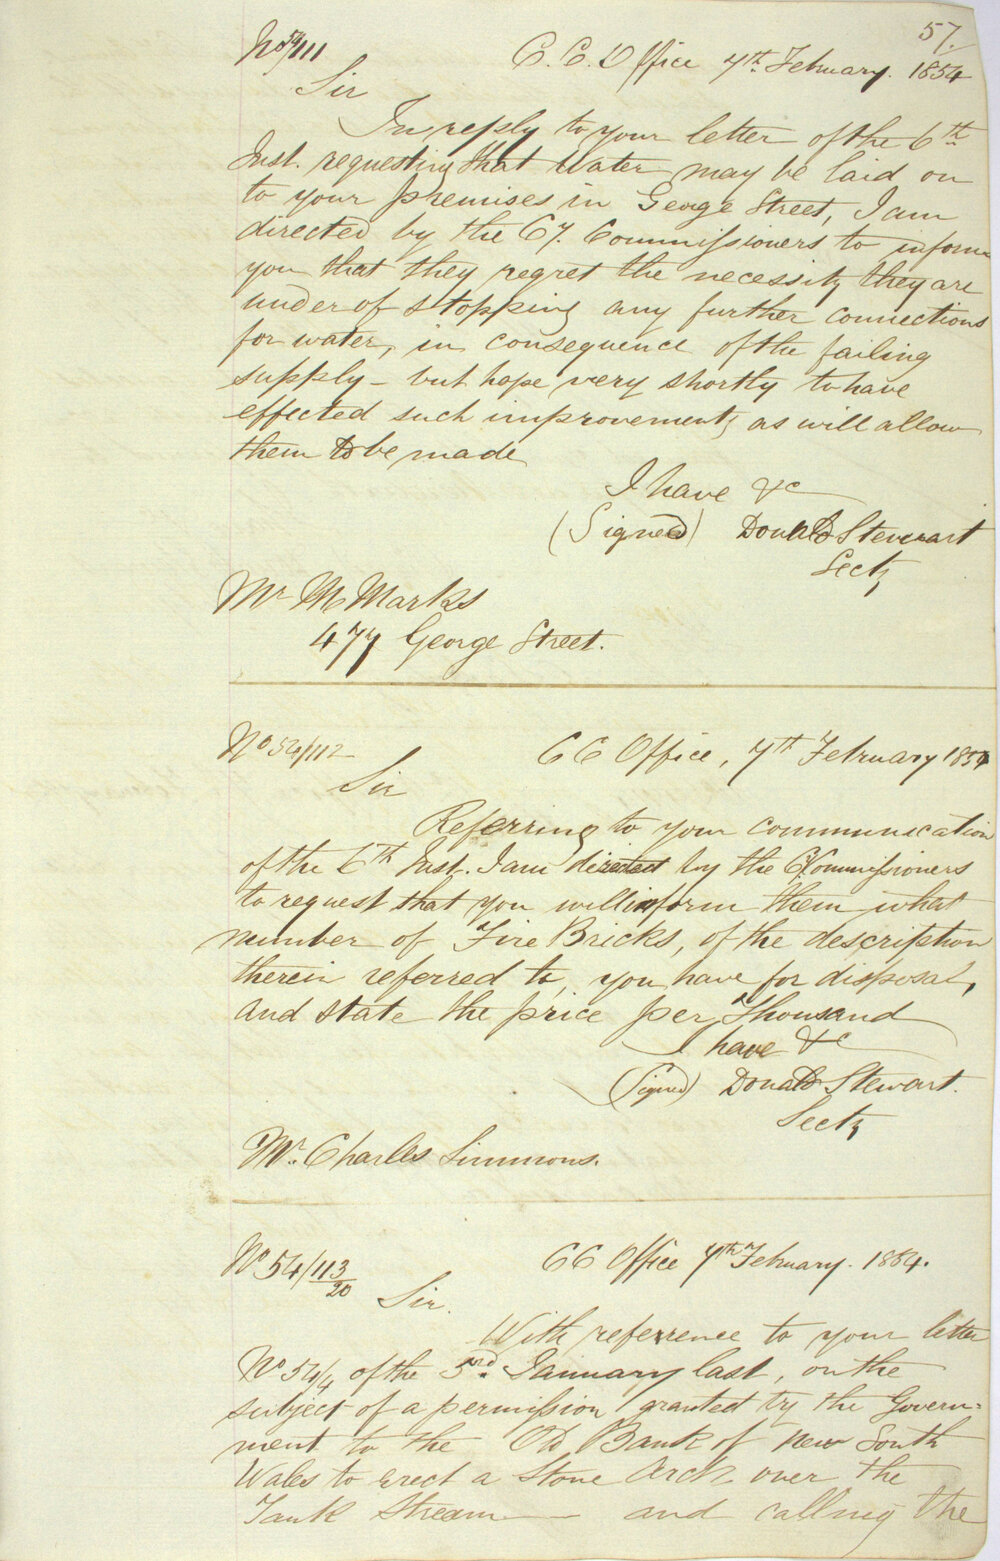 57.
No 54/111
C. C. Office 7th February. 1854
Sir
In reply to your letter of the 6th
Inst. requesting that Water may be laid on
to your premises in George Street, I am
directed by the Cy. Commissioners to inform
you that they regret the necessity they are
under of stopping any further connections
for water, in consequence of the failing
supply - but hope very shortly to have
effected such improvements as will allow
them to be made
I have &c
(Signed) Donald Stewart
Secty
Mr M Marks
477 George Street.
No 54/112
CC Office, 7th February 1854
Sir
Referring to your communication
of the 6th Inst. I am directed by the CCommissioners
to request that you will inform them what
number of Fire Bricks, of the description
therein referred to, you have for disposal,
and state the price per Thousand
I have &c
(Signed) Donald Stewart.
Secty
Mr. Charles Simmons.
No 54/113/20
CC Office 7th February. 1854.
Sir.
With reference to your letter
No 54/4 of the 3rd. January last, on the
subject of a permission granted by the Govern-
ment to the Old Bank of New South
Wales to erect a Stone Arch over the
Tank Stream - and calling the